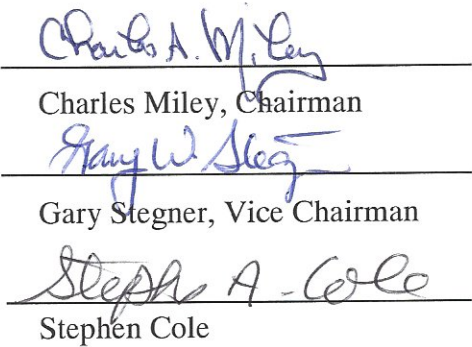 Charles A. Miley
Charles Miley, Chairman
Gary W. Stegner
Gary Stegner, Vice Chairman
Stephen A. Cole
Stephen Cole